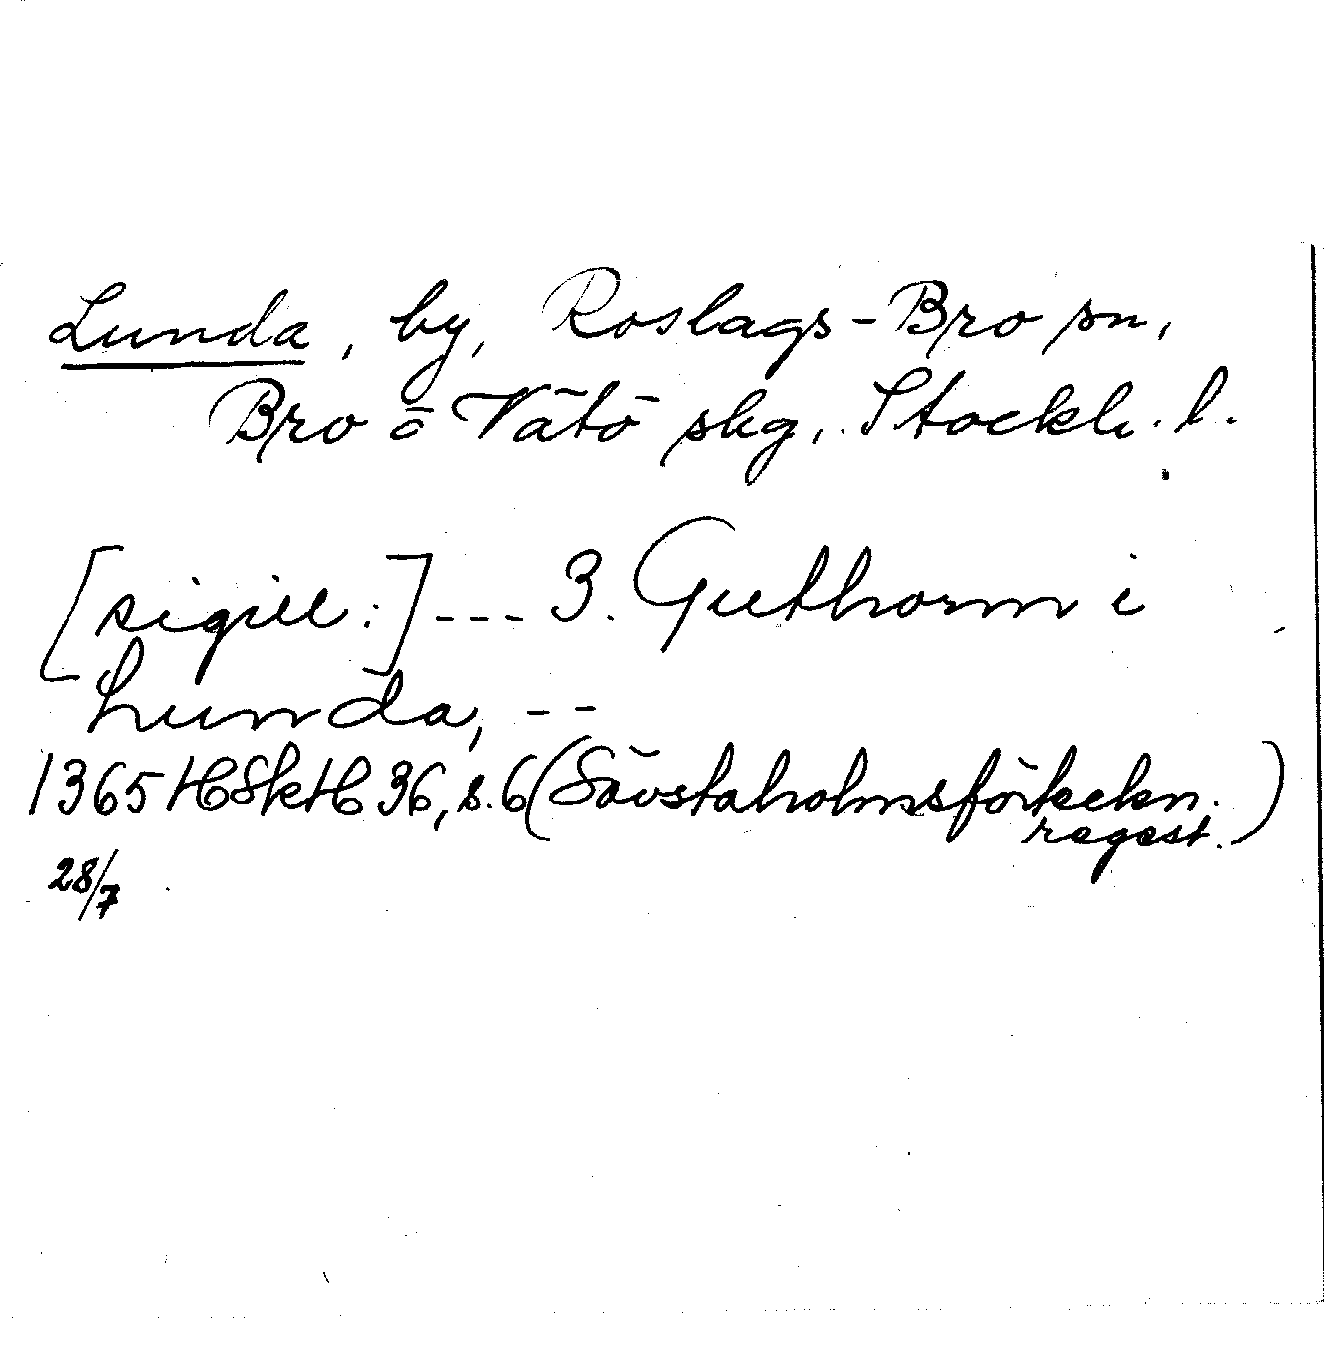 Lunda, by, Roslags-Bro sn,
Bro o Vätö skg, Stockh. l.
[sigill:] --- 3. Guthorm i
Lunda, --
1365 HSkH 36, s. 6 (Sävstaholmsförteckn.
regest.)
28/7